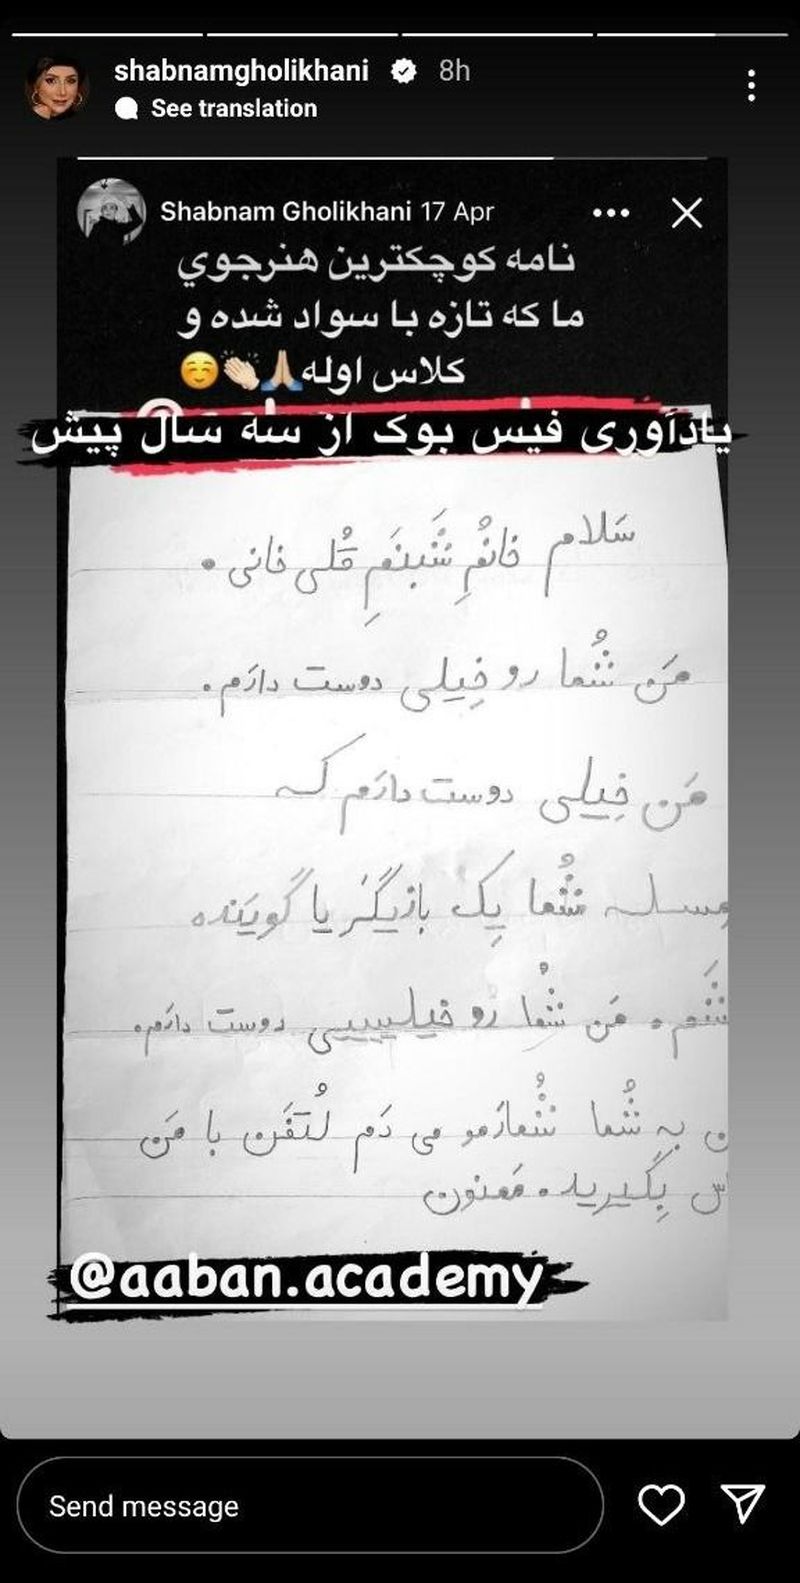 shabnamgholikhani 8h
See translation
Shabnam Gholikhani 17 Apr
نامه كوچكترين هنرجوي
ما كه تازه با سواد شده و
كلاس اوله🙏🏼👏🏻☺️
یادآوری فیس بوک از سه سال پیش
سَلام خانُمِ شَبنَمِ قُلی خانی .
مَن شُما رو خِیلی دوست دارَم .
مَن خِیلی دوست دارَم که
مسله شُما یِک بازیگَر یا گویَنده
شَم . مَن شُما رو خیلیییی دوست دارَم .
ن به شُما شُمارَمو می دَم لُتفَن با مَن
اس بِگیرید . مَمنون
@aaban.academy
Send message